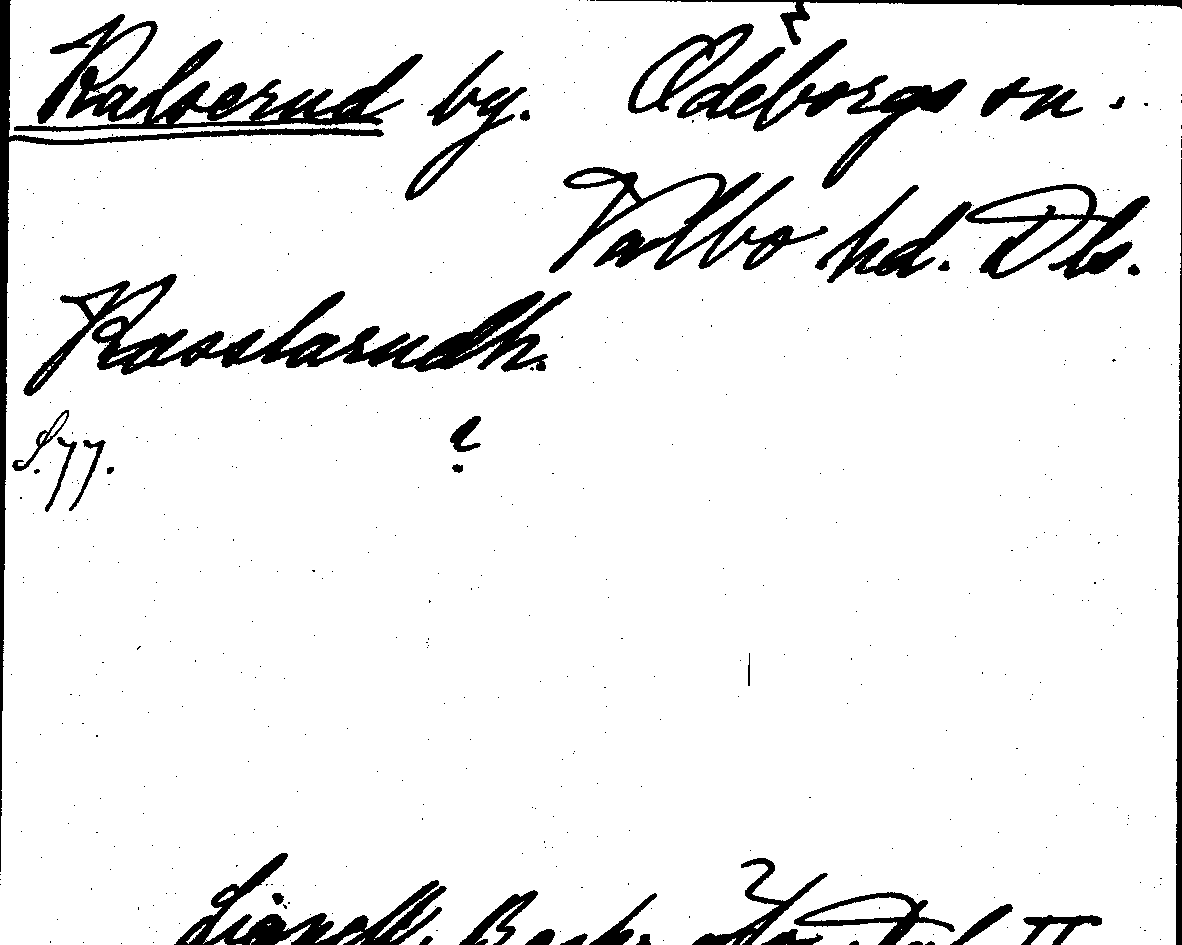 Ralserud by. Ödeborgs sn.
Valbo hd. Dls.
Rasslarudh.
S. 77. ?
Lignell, Beskr. öfv. Dal II